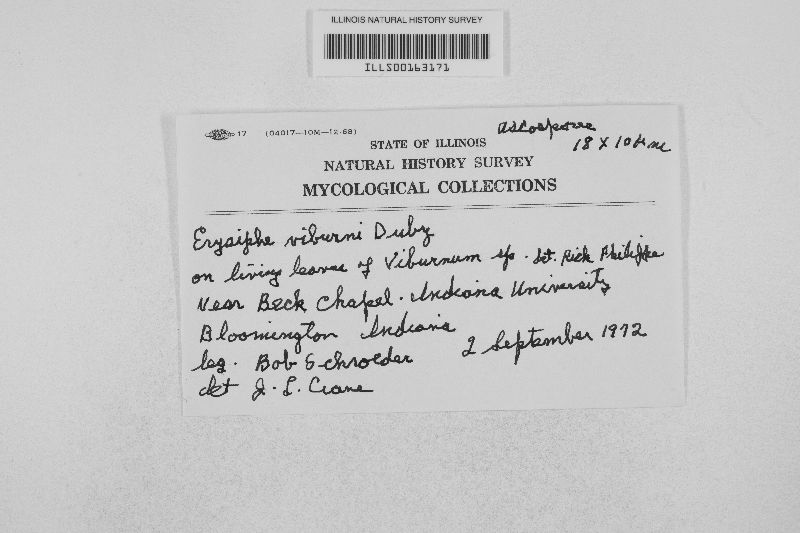 ILLINOIS NATURAL HISTORY SURVEY
ILLS00163171
17 (04017—10M—12-68)
ascospore
18 X 10 µm
STATE OF ILLINOIS
NATURAL HISTORY SURVEY
MYCOLOGICAL COLLECTIONS
Erysiphe viburni Duby
on living leaves of Viburnum sp. det. Rick
Near Beck Chapel. Indiana University
Bloomington Indiana
leg. Bob Schroeder 2 September 1972
det J. L. Crane